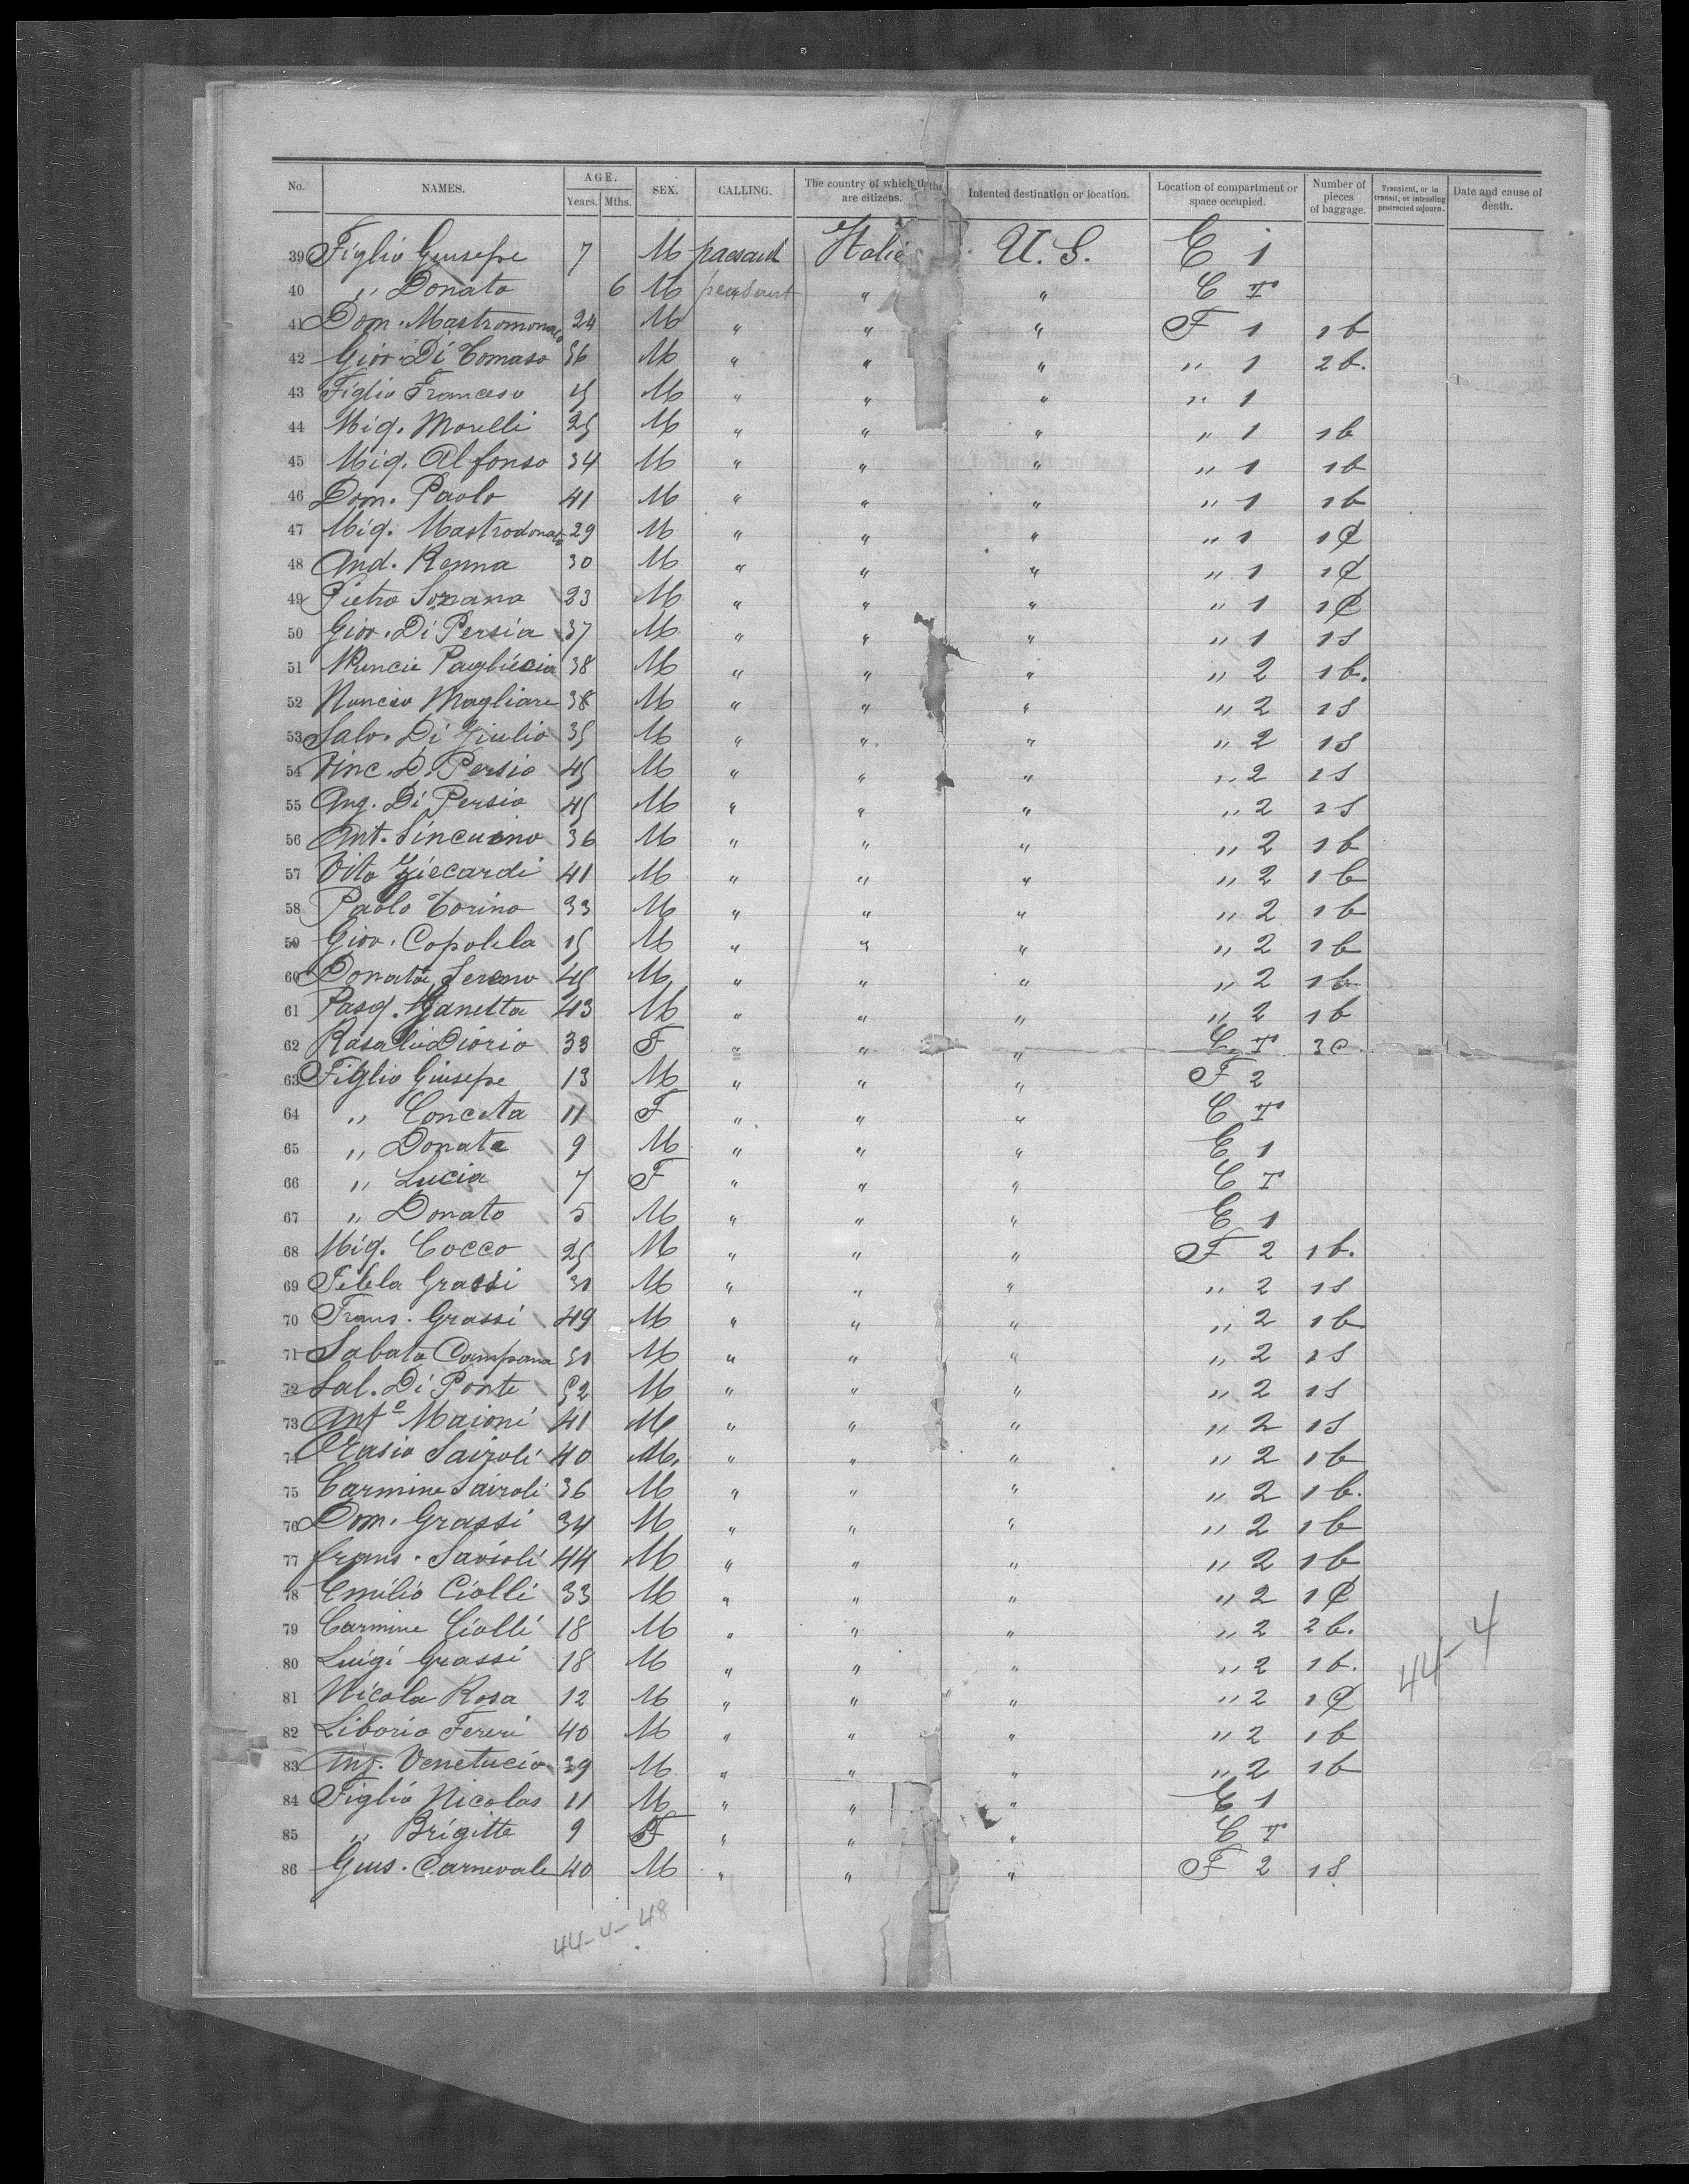 No. NAMES. AGE. Years. Mths. SEX. CALLING. The country of which they are citizens. Intented destination or location. Location of compartment or space occupied. Number of pieces of baggage. Transient, or in transit, or intending protracted sojourn. Date and cause of death.
39 Figlio Giusepe 7 M Italie U. S. E 1
40 " Donato 6 M peasant " " C T
41 Dom. Mastromonaco 24 M " " " F 1 1 b
42 Giov. Di Tomaso 36 M " " " " 1 2 b.
43 Figlio Francesco M " " " " 1
44 Mig. Morelli 25 M " " " " 1 1 b
45 Mig. Alfonso 34 M " " " " 1 1 b
46 Dom. Paolo 41 M " " " " 1 1 b
47 Mig. Mastrodonato 29 M " " " " 1 1 ₵
48 And. Renna 30 M " " " " 1 1 ₵
49 Pietro Sozana 23 M " " " " 1 1 ₵
50 Giov. Di Persia 37 M " " " " 1 1 S
51 38 M " " " " 2 1 b.
52 Nuncio Magliare 38 M " " " " 2 1 S
53 Salv. Di Giulio 35 M " " " " 2 1 S
54 Vinc. D. Persio 45 M " " " " 2 1 S
55 Ang. Di Persio 45 M " " " " 2 1 S
56 Ant. 36 M " " " " 2 1 b
57 Vito Giccardi 41 M " " " " 2 1 b
58 Paolo Torino 33 M " " " " 2 1 b
59 Giov. Copolela 15 M " " " " 2 1 b
60 Donato Sereno 45 M " " " " 2 1 b
61 Pasq. 43 M " " " " 2 1 b
62 Rasalia Diorio 33 F " " " C T 3 C
63 Figlio Giusepe 13 M " " " F 2
64 " Conceta 11 F " " " C T
65 " Donata 9 M " " " E 1
66 " Lucia 7 F " " " C T
67 " Donato 5 M " " " E 1
68 Mig. Cocco 25 M " " " F 2 1 b.
69 Felela Grassi M " " " " 2 1 S
70 Frans. Grassi 49 M " " " " 2 1 b
71 Sabato Campana M " " " " 2 1 S
72 Sal. Di Ponte 52 M " " " " 2 1 S
73 Antº Maioni 41 M " " " " 2 1 S
74 Orasio Sairoli 40 M. " " " " 2 1 b
75 Carmine Sairoli 36 M " " " " 2 1 b.
76 Dom. Grassi 34 M " " " " 2 1 b
77 frans. Savioli 44 M " " " " 2 1 b
78 Emilio Ciolli 33 M " " " " 2 1 ₵
79 Carmine Ciolli 18 M " " " " 2 2 b.
80 Luigi Grassi 18 M " " " " 2 1 b.
81 Nicola Rosa 12 M " " " " 2 1 ₵
44-4
82 Liborio Fereri 40 M " " " " 2 1 b
83 Ant. Venetucio 39 M " " " " 2 1 b
84 Figlio Nicolas 11 M " " " E 1
85 " Brigitte 9 F " " " C T
86 Gius. Carnevale 40 M " " " F 2 1 S
44-4-48